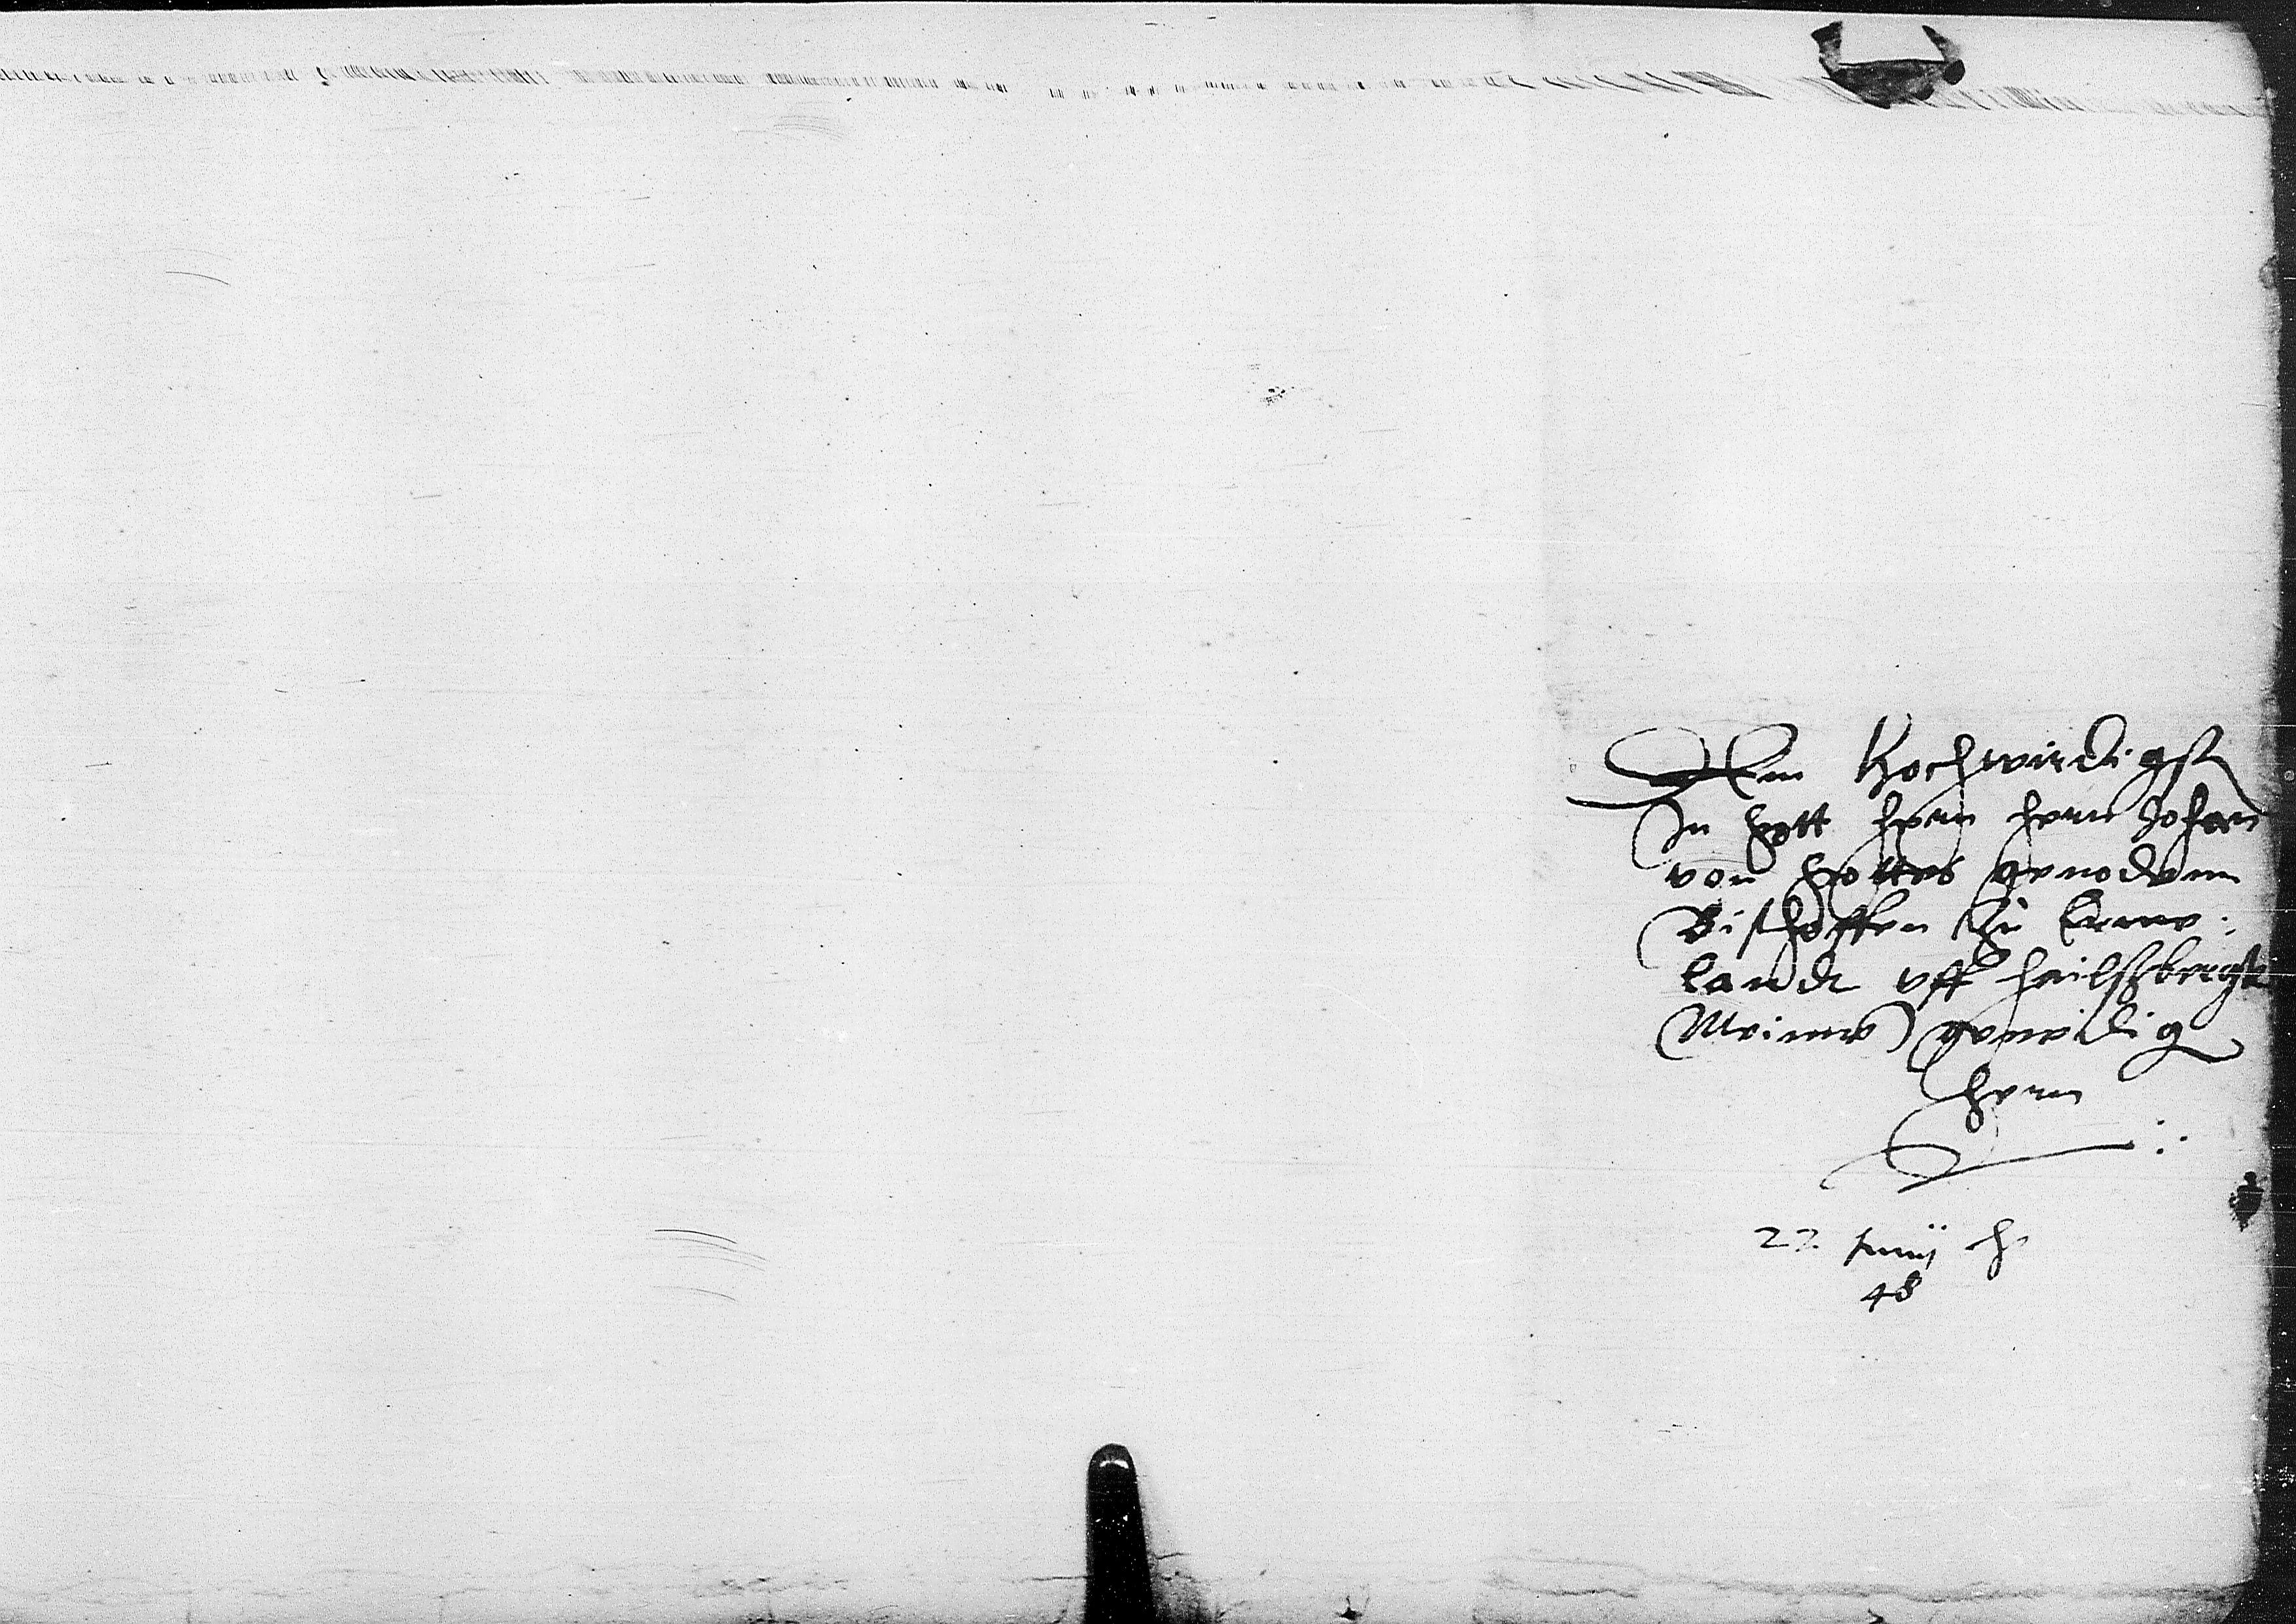 Dem Hochwirdigst
In Gott hern hern Johan
von Gottes genodenn
Bischoffen zu Erme:
landt vff heilßbergk
Meinne genedig
hern
22 Junij h
48